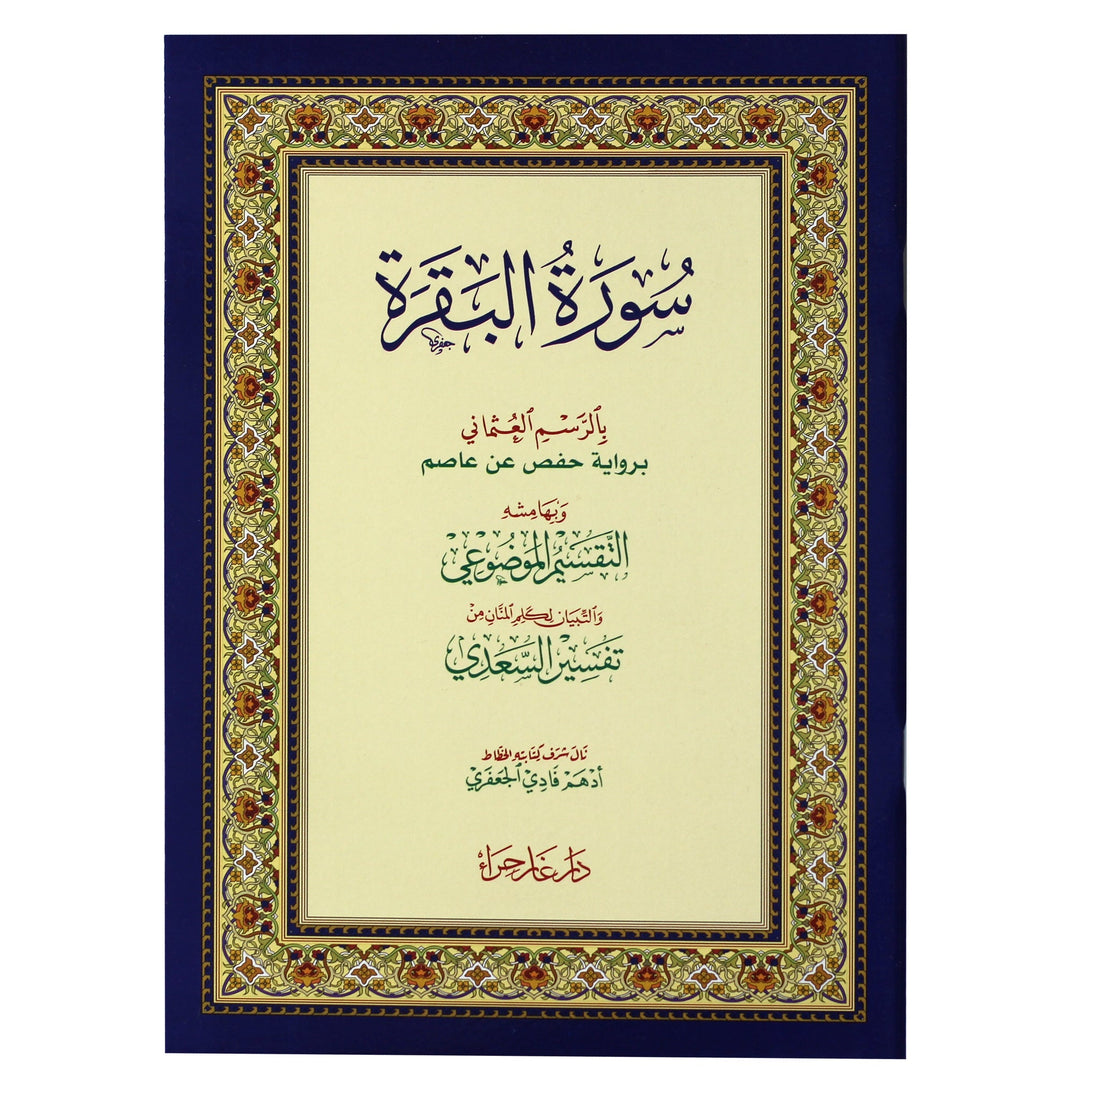 سُورَةُ البَقَرَة
جعفري
بِٱلرَّسْمِ ٱلعُثماني
برواية حفص عن عاصم
وَبِهَامِشهِ
التَّقسِيْمُ المَوضُوْعِي
وَالتِّبيَان لِكَلِمِ المَنَّانِ مِنْ
تَفسِيْر السَّعْدِي
نَالَ شَرَف كِتَابَتِهِ الخَطَّاط
أدهَم فَادِي الجَعفَرِي
دَار غَار حِرَاء